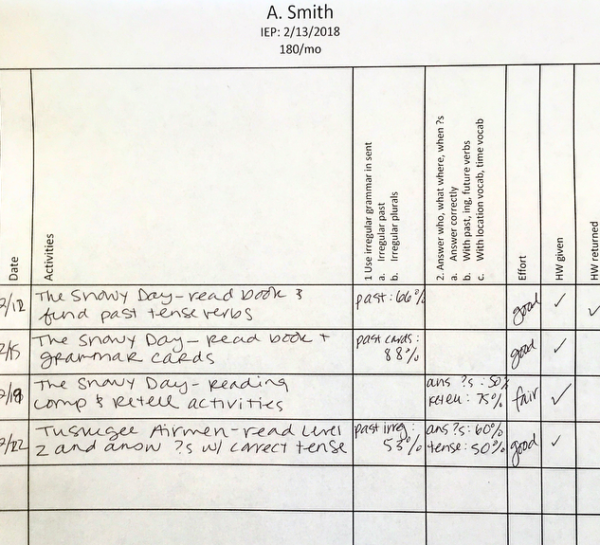 A. Smith
IEP: 2/13/2018
180/mo
Date
Activities
1 Use irregular grammar in sent
a. Irregular past
b. Irregular plurals
2. Answer who, what where, when ?s
a. Answer correctly
b. With past, ing, future verbs
c. With location vocab, time vocab
Effort
HW given
HW returned
2/12
The Snowy Day - read book &
find past tense verbs
past: 66%
good
✓
✓
2/15
The Snowy Day - read book +
grammar cards
past cards:
88%
good
✓
2/19
The Snowy Day - reading
comp & retell activities
ans ?s: 50%
retell: 75%
fair
✓
2/22
Tuskegee Airmen - read level
2 and answ ?s w/ correct tense
past irreg:
53%
ans ?s: 60%
tense: 50%
good
✓